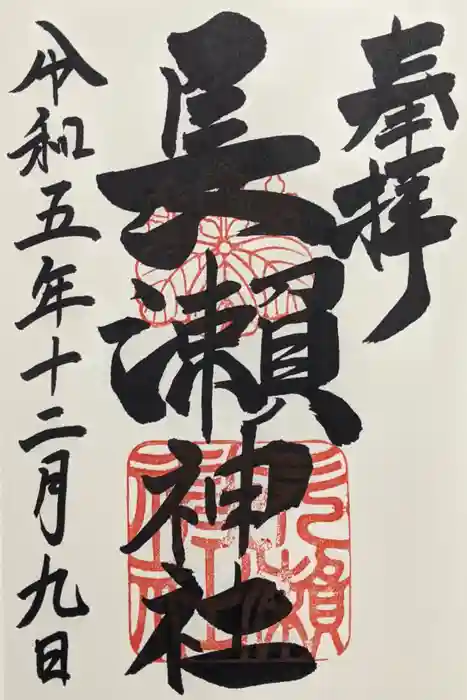 奉拝
長瀬神社
令和五年十二月九日